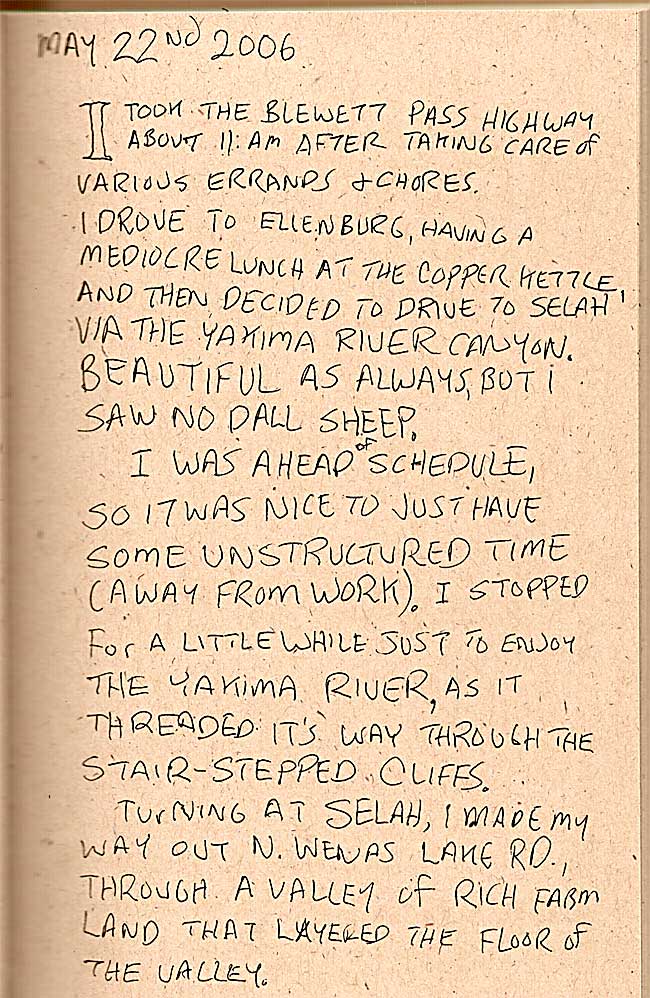 MAY 22ND 2006
I TOOK THE BLEWETT PASS HIGHWAY
ABOUT 11:AM AFTER TAKING CARE of
VARIOUS ERRANDS & CHORES.
I DROVE TO ELLENBURG, HAVING A
MEDIOCRE LUNCH AT THE COPPER KETTLE,
AND THEN DECIDED TO DRIVE TO SELAH
VIA THE YAKIMA RIVER CANYON.
BEAUTIFUL AS ALWAYS, BUT I
SAW NO DALL SHEEP.
I WAS AHEAD of SCHEDULE,
SO IT WAS NICE TO JUST HAVE
SOME UNSTRUCTURED TIME
(AWAY FROM WORK). I STOPPED
For A LITTLE WHILE JUST TO ENJOY
THE YAKIMA RIVER, AS IT
THREADED IT'S WAY THROUGH THE
STAIR-STEPPED CLIFFS.
TURNING AT SELAH, I MADE MY
WAY OUT N. WENAS LAKE RD.,
THROUGH A VALLEY of RICH FARM
LAND THAT LAYERED THE FLOOR of
THE VALLEY.